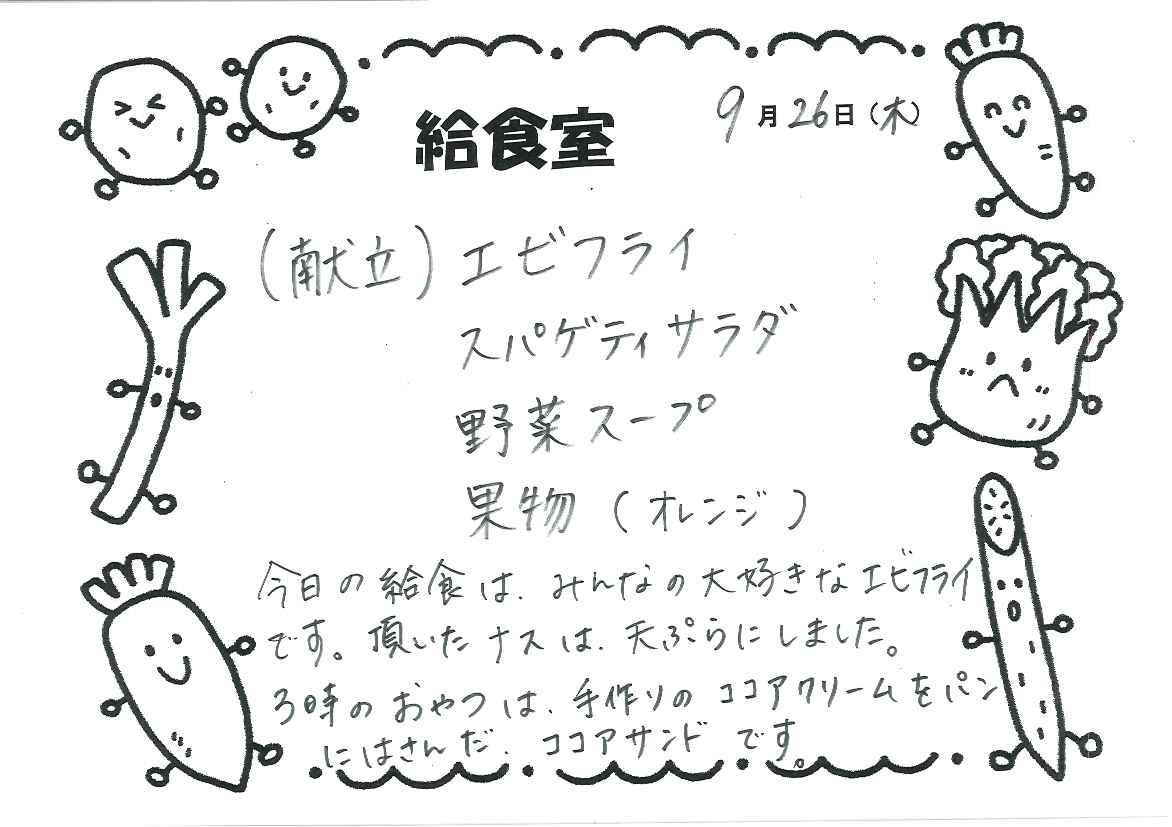 給食室
9月26日(木)
(献立)エビフライ
スパゲティサラダ
野菜スープ
果物(オレンジ)
今日の給食は、みんなの大好きなエビフライ
です。頂いたナスは、天ぷらにしました。
3時のおやつは、手作りのココアクリームをパン
にはさんだ、ココアサンドです。